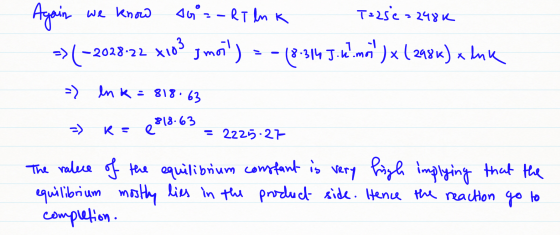 Again we know ΔG° = -RT ln K T = 25°C = 298K
=> (-2028.22 x10³ J mol⁻¹) = -(8.314 J.K⁻¹.mol⁻¹) x (298K) x ln K
=> ln K = 818.63
=> K = e^818.63 = 2225.27
The value of the equilibrium constant is very high implying that the
equilibrium mostly lies in the product side. Hence the reaction go to
completion.